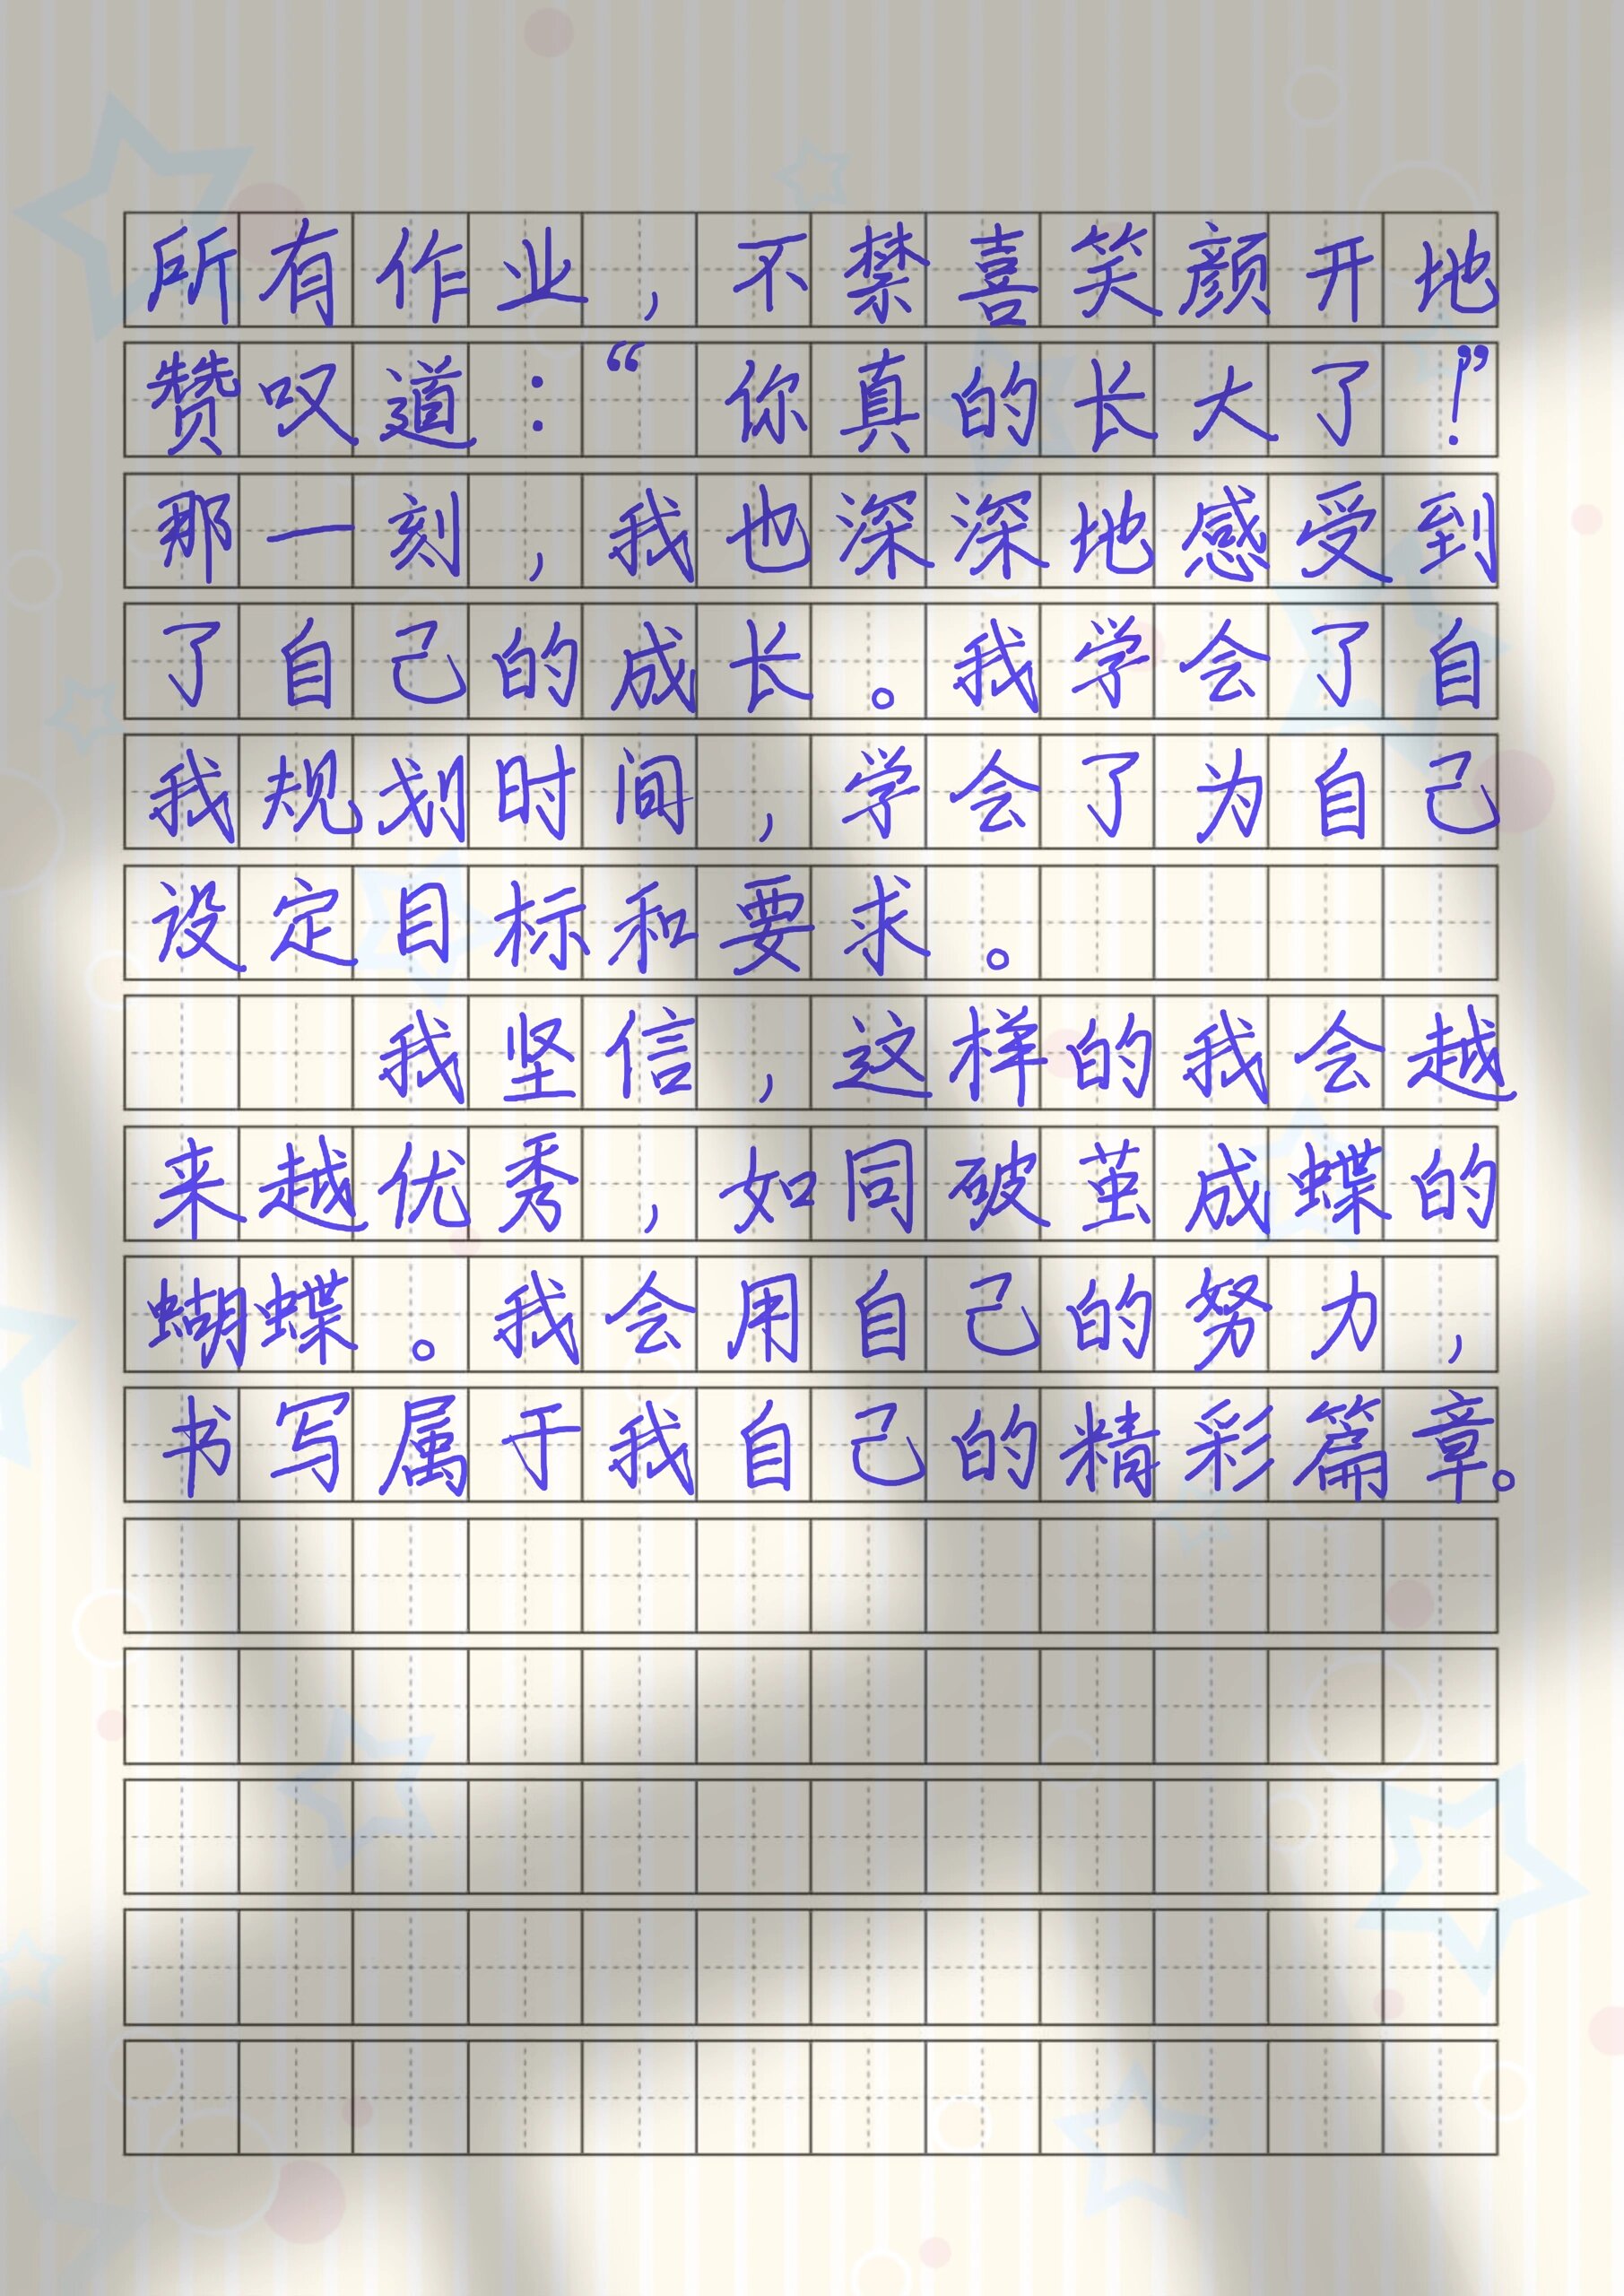 所有作业，不禁喜笑颜开地
赞叹道：“你真的长大了！”
那一刻，我也深深地感受到
了自己的成长。我学会了自
我规划时间，学会了为自己
设定目标和要求。
我坚信，这样的我会越
来越优秀，如同破茧成蝶的
蝴蝶。我会用自己的努力，
书写属于我自己的精彩篇章。